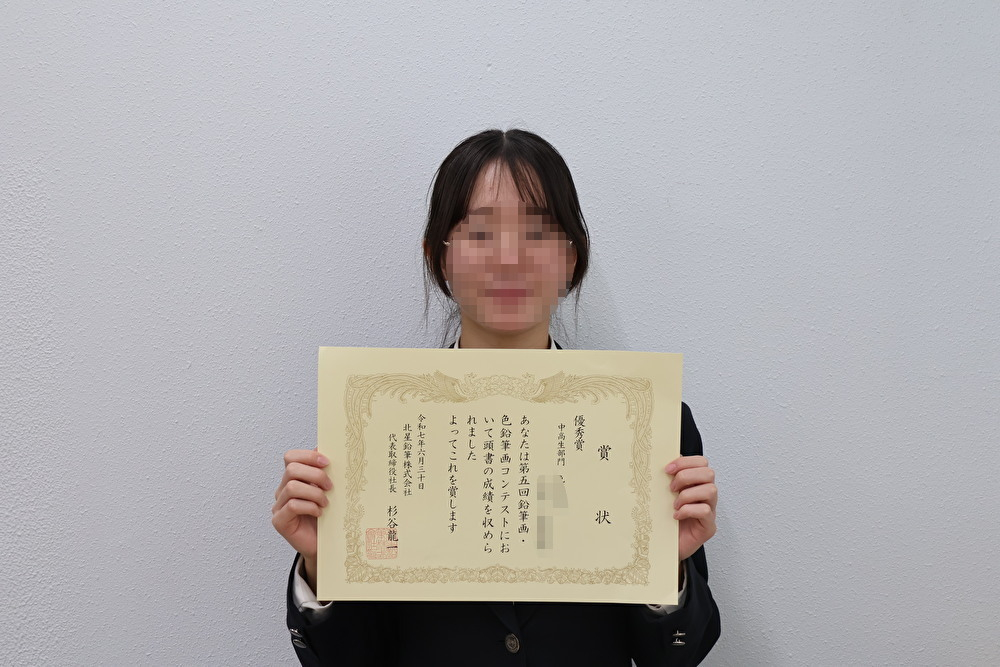 賞状
優秀賞
中高生部門
あなたは第五回鉛筆画・
色鉛筆画コンテストにお
いて頭書の成績を収めら
れました
よってこれを賞します
令和七年六月三十日
北星鉛筆株式会社
代表取締役社長 杉谷龍一